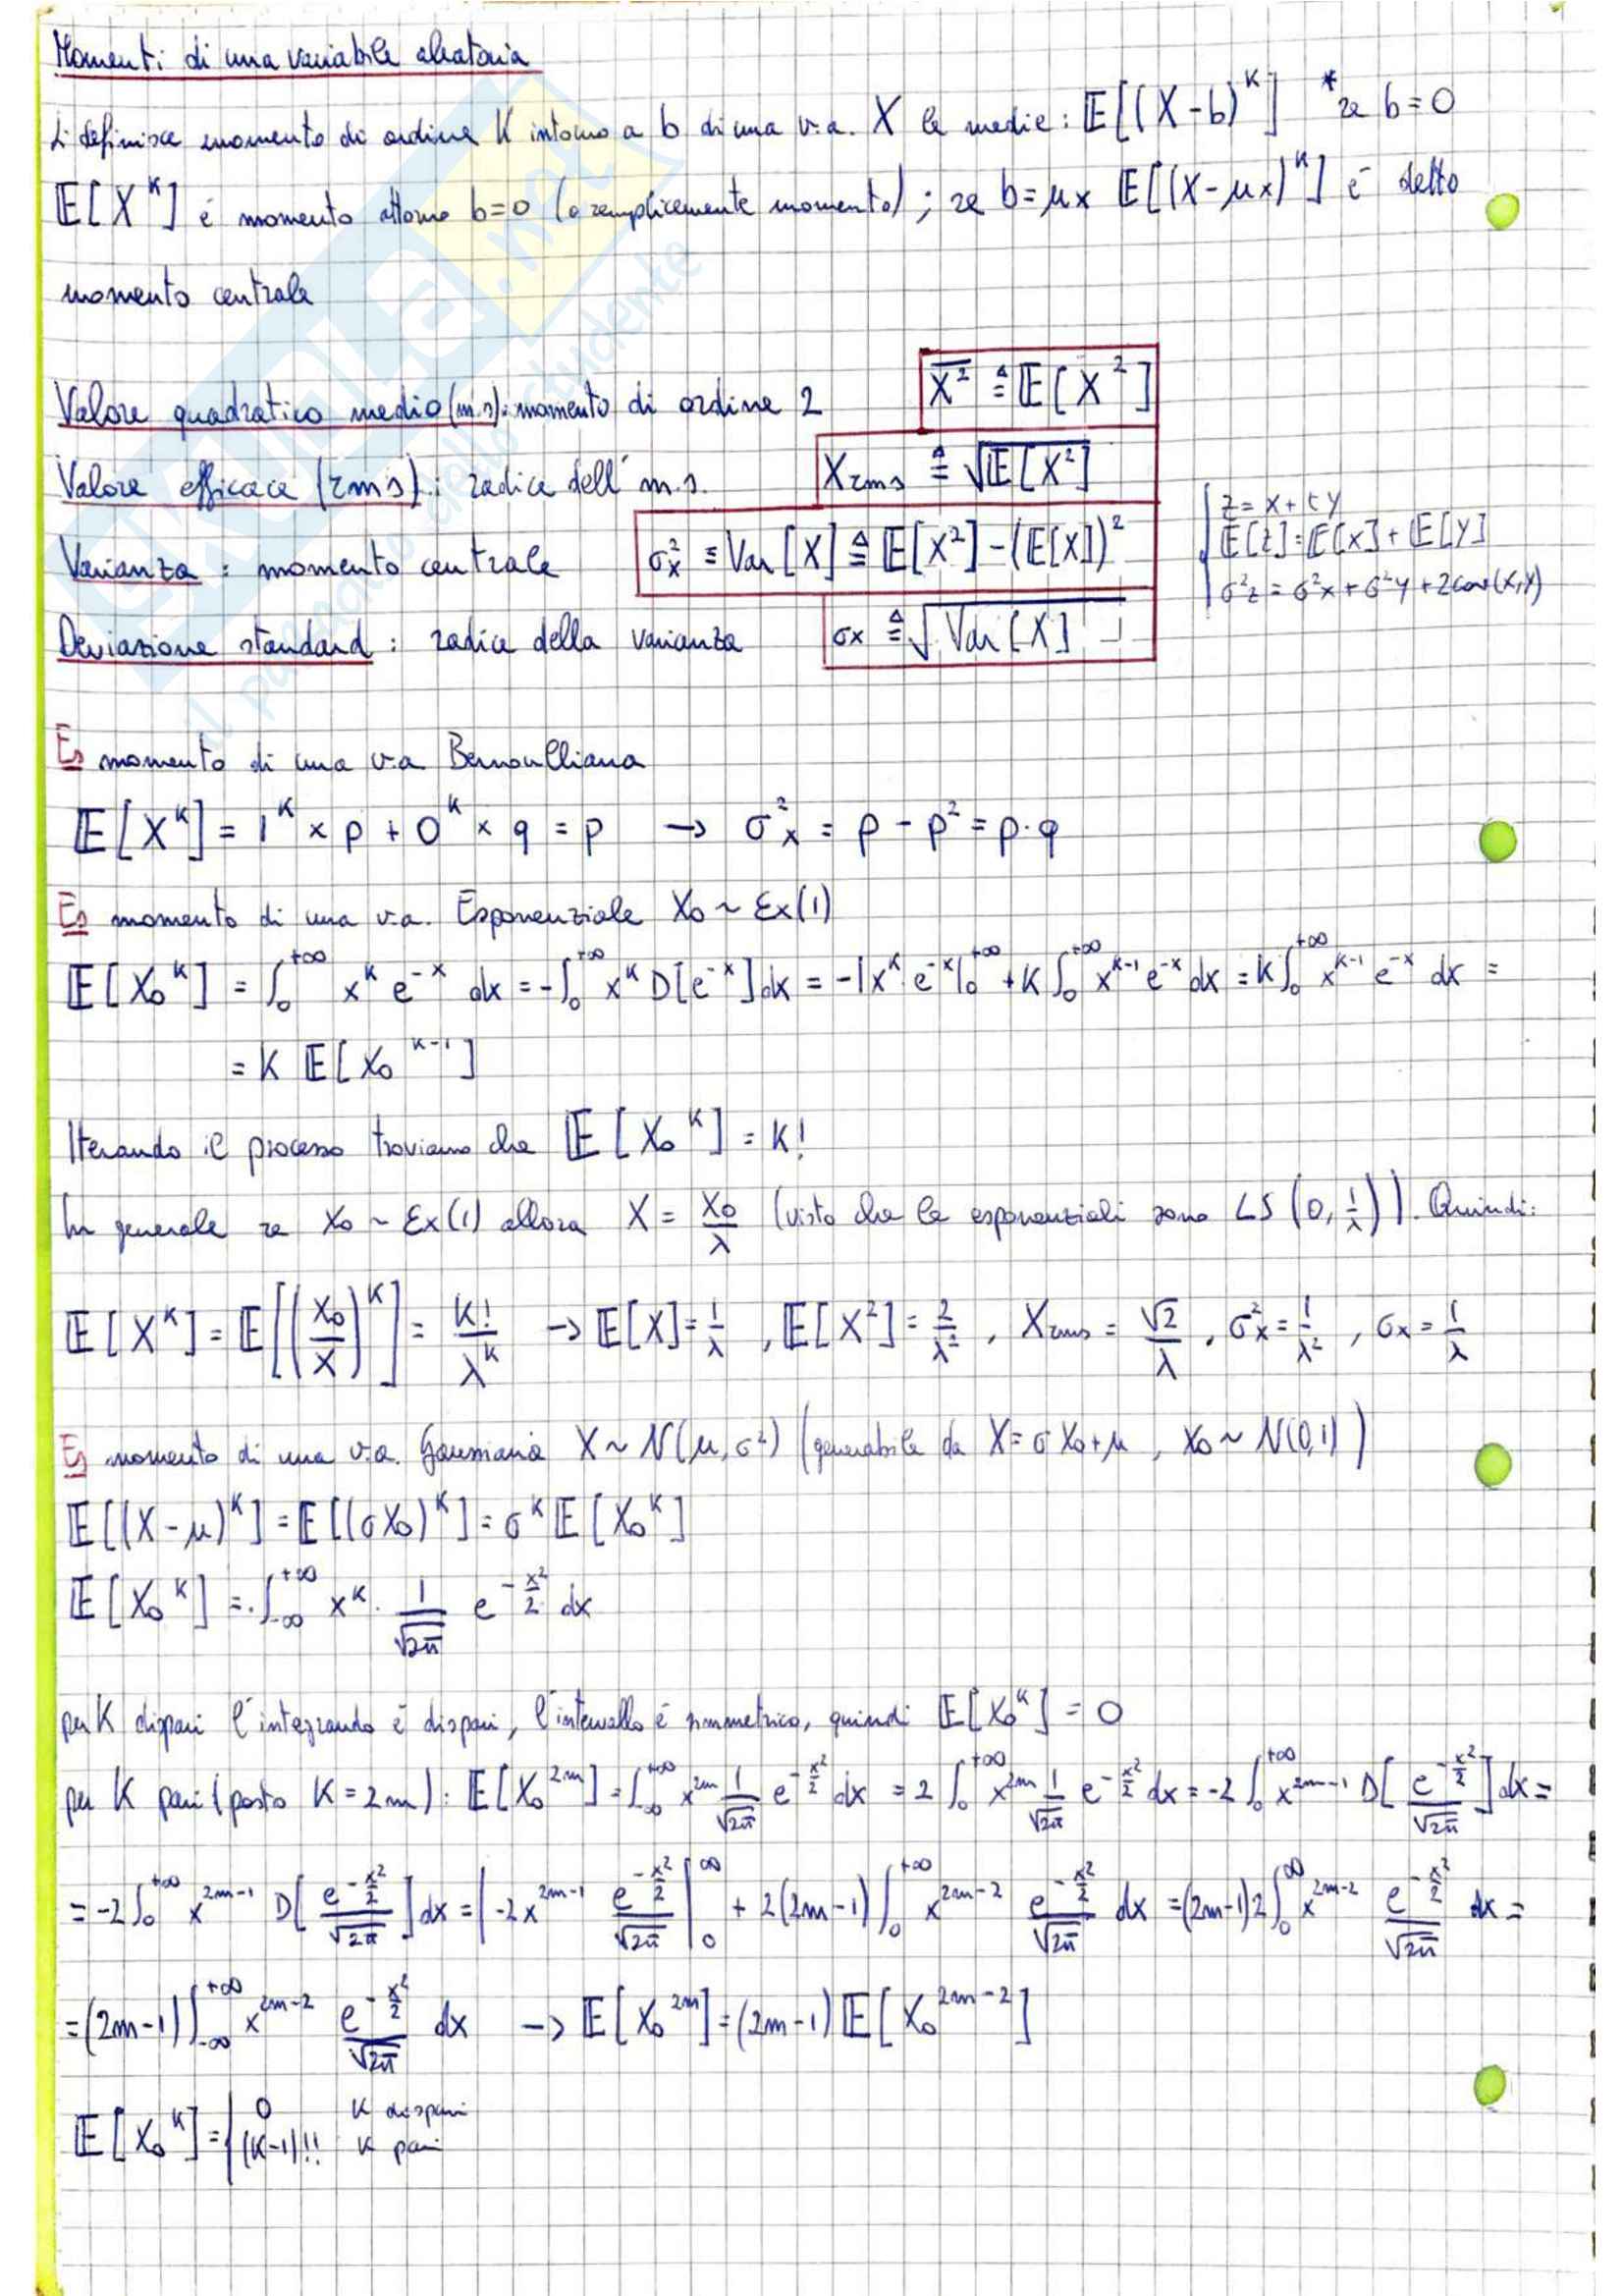 Momenti di una variabile aleatoria
Si definisce momento di ordine K intorno a b di una v.a. X le medie: E[(X-b)^K] * se b=0
E[X^K] è momento attorno b=0 (o semplicemente momento); se b=μx E[(X-μx)^K] è detto
momento centrale
Valore quadratico medio (m.s): momento di ordine 2 X̅² ≜ E[X²]
Valore efficace (rms): radice dell' m.s. Xrms ≜ √E[X²]
z = x + y
E[z] = E[x] + E[y]
Varianza : momento centrale σ²x ≡ Var[X] ≜ E[X²] - (E[X])²
σ²z = σ²x + σ²y + 2cov(x,y)
Deviazione standard : radice della varianza σx ≜ √Var[X]
Es momento di una v.a Bernoulliana
E[X^K] = 1^K × p + 0^K × q = p → σ²x = p - p² = p·q
Es momento di una v.a. Esponenziale X₀ ~ Ex(1)
E[X₀^K] = ∫₀^{+∞} x^K e^{-x} dx = -∫₀^{+∞} x^K D[e^{-x}] dx = -|x^K e^{-x}|₀^{+∞} + K∫₀^{+∞} x^{K-1} e^{-x} dx = K∫₀^{+∞} x^{K-1} e^{-x} dx =
= K E[X₀^{K-1}]
Iterando il processo troviamo che E[X₀^K] = K!
In generale se X₀ ~ Ex(1) allora X = X₀/λ (visto che le esponenziali sono LS (0, 1/λ)). Quindi:
E[X^K] = E[(X₀/λ)^K] = K!/λ^K → E[X] = 1/λ , E[X²] = 2/λ² , Xrms = √2/λ , σ²x = 1/λ² , σx = 1/λ
Es momento di una v.a. Gaussiana X ~ N(μ,σ²) (generabile da X = σX₀+μ , X₀ ~ N(0,1))
E[(X-μ)^K] = E[(σX₀)^K] = σ^K E[X₀^K]
E[X₀^K] = ∫_{-∞}^{+∞} x^K · 1/√2π e^{-x²/2} dx
per K dispari l'integrando è dispari, l'intervallo è simmetrico, quindi E[X₀^K] = 0
per K pari (posto K=2m): E[X₀^{2m}] = ∫_{-∞}^{+∞} x^{2m} 1/√2π e^{-x²/2} dx = 2∫₀^{+∞} x^{2m} 1/√2π e^{-x²/2} dx = -2∫₀^{+∞} x^{2m-1} D[e^{-x²/2}/√2π] dx =
= -2∫₀^{+∞} x^{2m-1} D[e^{-x²/2}/√2π] dx = |-2x^{2m-1} e^{-x²/2}/√2π|₀^∞ + 2(2m-1)∫₀^{+∞} x^{2m-2} e^{-x²/2}/√2π dx = (2m-1)2∫₀^∞ x^{2m-2} e^{-x²/2}/√2π dx =
= (2m-1)∫_{-∞}^{+∞} x^{2m-2} e^{-x²/2}/√2π dx → E[X₀^{2m}] = (2m-1)E[X₀^{2m-2}]
E[X₀^K] = { 0 K dispari
(K-1)!! K pari